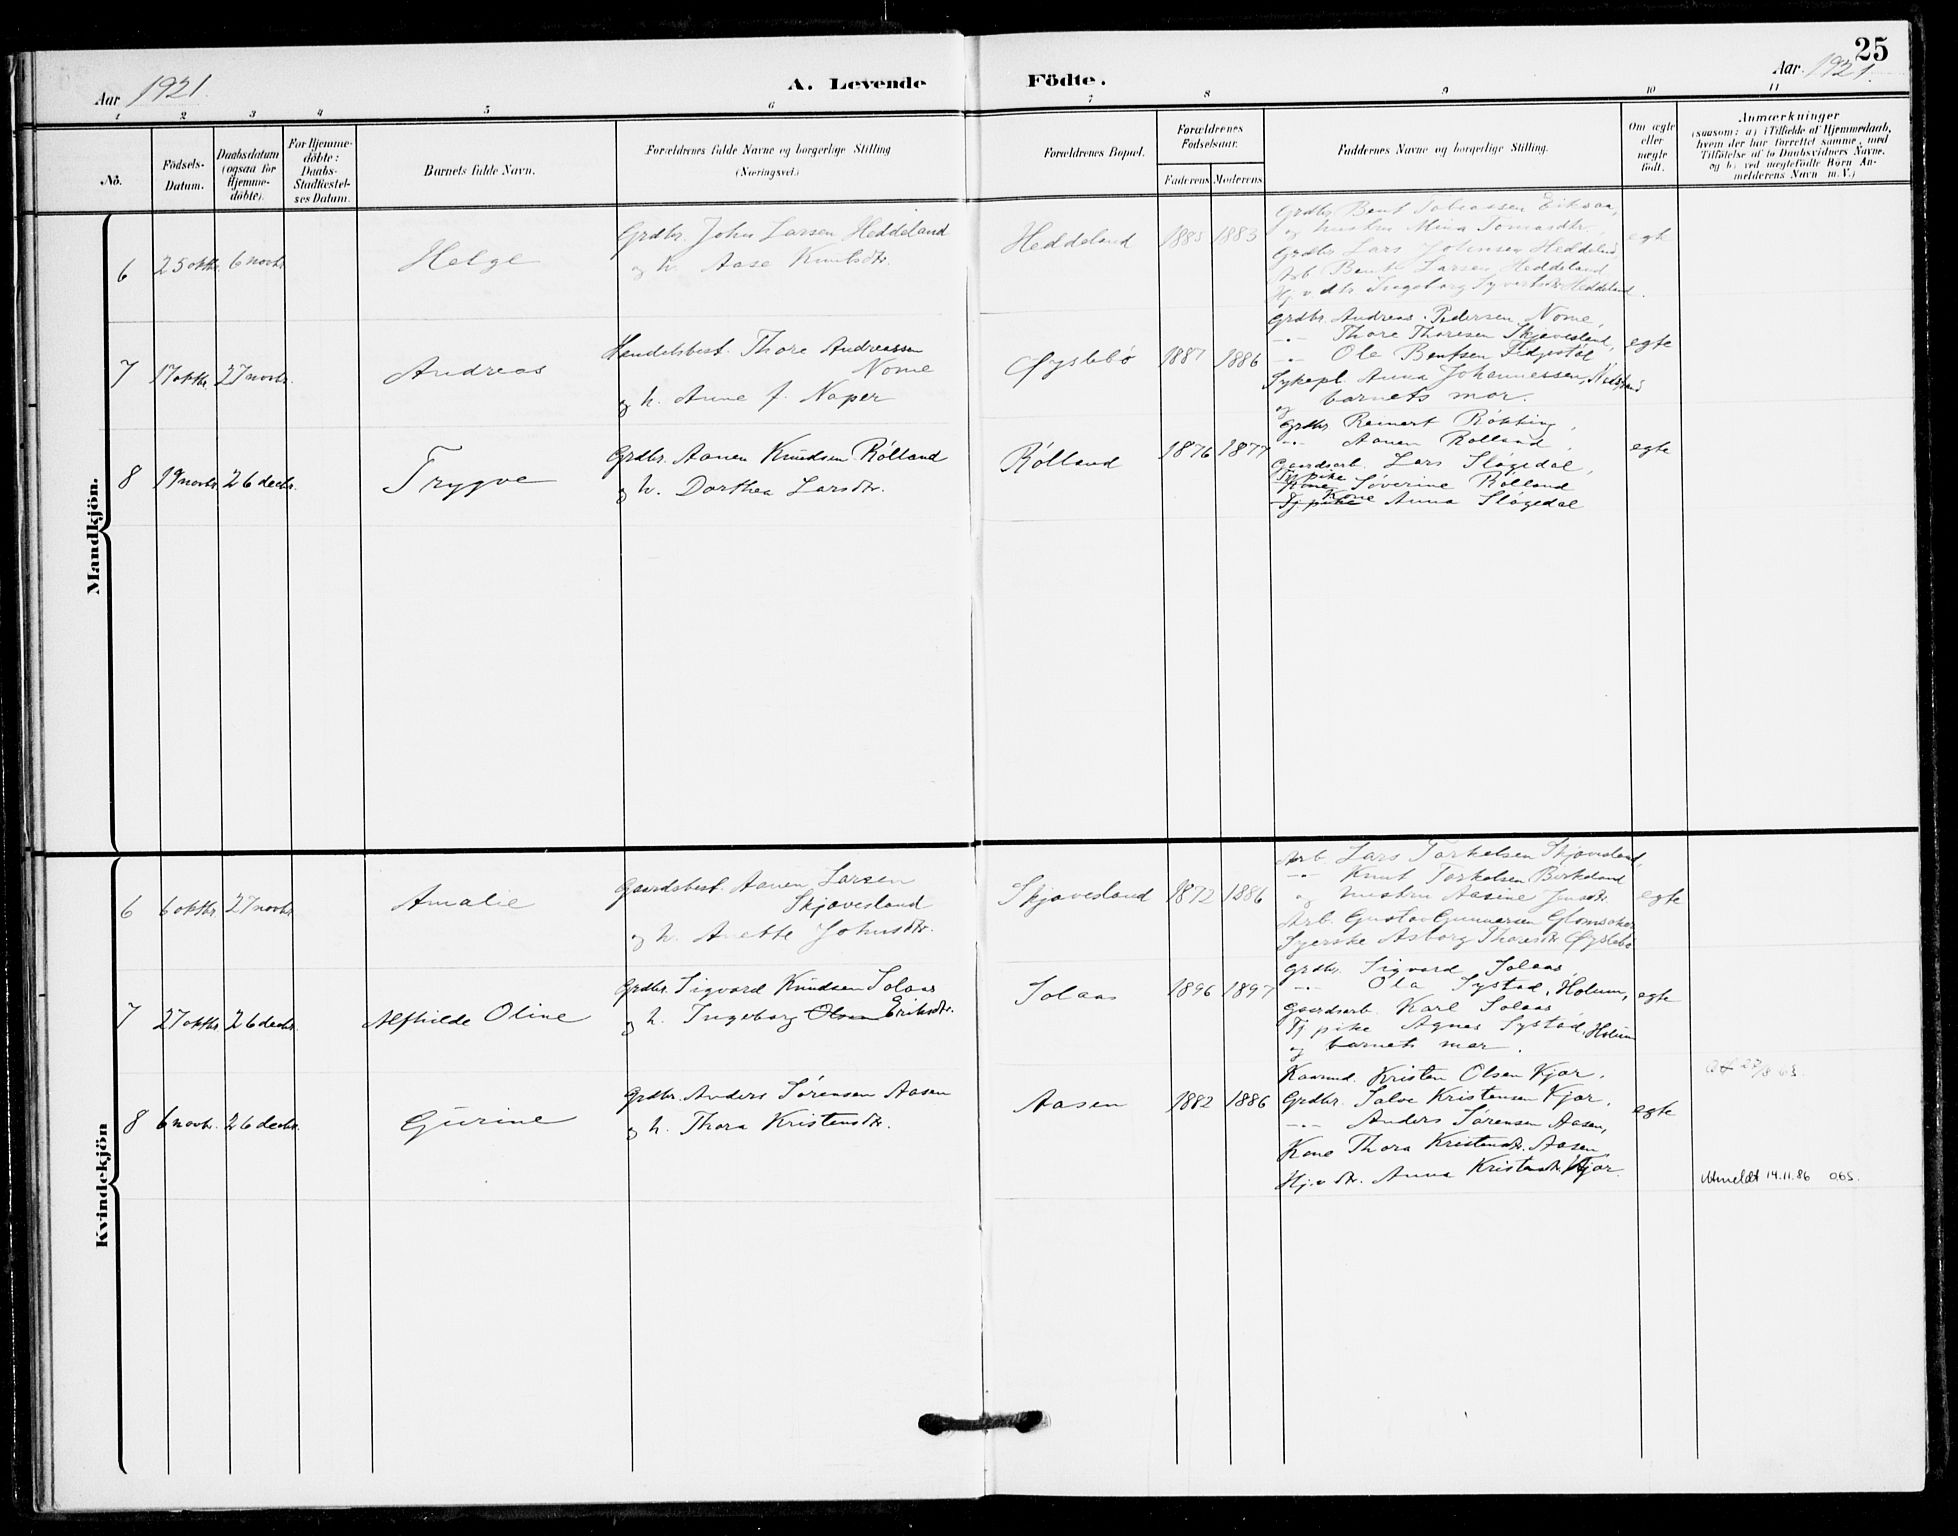 25
Aar 1921.
A. Levende
Födte.
Aar 1921.
1 2 3 4 5 6 7 8 9 10 11
No.
Födsels-
Datum.
Daabsdatum
(ogsaa for
Hjemme-
döbte).
For Hjemme-
döbte:
Daabs-
Stadfæstel-
ses Datum.
Barnets fulde Navn.
Forældrenes fulde Navne og borgerlige Stilling
(Næringsvei.)
Forældrenes Bopæl.
Forældrenes
Födselsaar.
Faderens Moderens
Faddernes Navne og borgerlige Stilling.
Om ægte
eller
uægte
födt.
Anmærkninger
(saasom: a) i Tilfælde af Hjemmedaab,
hvem der har forrettet samme, med
Tilföielse af to Daabsvidners Navne,
og b) ved uægtefödte Börn An-
melderens Navn m. V.)
Mandkjön.
6 25 oktbr. 6 novbr. Helge
Grdbr. John Larsen Heddeland
og h. Aase Knutsdtr.
Heddeland 1885 1883
Grdbr. Bent Tobiassen Eiksaa,
og hustru Mina Tomasdtr.,
Grdbr. Lars Johnsen Heddeland,
Arb. Bent Larsen Heddeland
Hj.v. dtr. Ingeborg Syvertsdtr. Heddeland.
egte
7 17 oktbr. 27 novbr. Andreas
Handelsbest. Thore Andreassen
Nome
og h. Anne f. Naper
Øyslebø 1887 1886
Grdbr. Andreas Pedersen Nome,
-"- Thore Thoresen Skjævesland,
-"- Ole Bentsen Fidjestøl
Sykepl. Anna Johannessen,
og barnets mor.
egte
8 19 novbr. 26 decbr. Trygve
Grdbr. Aanen Knudsen Rølland
og h. Dorthea Larsdtr.
Rølland 1876 1877
Grdbr. Reinert Røkking,
-"- Aanen Rølland,
Gaardsarb. Lars Sløgedal,
Tj. pike
Kone Søverine Rølland
Kone
Tj. pike Anna Sløgedal
egte
Kvindekjön
6 6 oktbr. 27 novbr. Amalie
Gaardsbest. Aanen Larsen
Skjævesland
og h. Anette Johnsdtr.
Skjævesland 1872 1886
Arb. Lars Torkelsen Skjævesland,
-"- Knut Torkelsen Birkeland
og hustru Aasine Jensdtr.
Arb. Gustav Gunnarsen Glomsaker
Syerske Asborg Thoresdtr. Øyslebø
egte
7 27 oktbr. 26 decbr. Alfhilde Oline
Grdbr. Sigvard Knudsen Solaas
og h. Ingeborg Olsen Eriksdtr.
Solaas 1896 1897
Grdbr. Sigvard Solaas,
-"- Ola Systad, Holum,
Gaardsarb. Karl Solaas,
Tj. pike Agnes Systad, Holum
og barnets mor.
egte
8 6 novbr. 26 decbr. Gurine
Grdbr. Anders Sørensen Aasen
og h. Thora Kristensdtr.
Aasen 1882 1886
Kaarmd. Kristen Olsen Kjær.
Grdbr. Salve Kristensen Kjær.
-"- Anders Sørensen Aasen,
Kone Thora Kristensdtr. Aasen
Hj.v. dtr. Anna Kristensdtr. Kjær.
egte
Utmeldt 14.11.86 065.